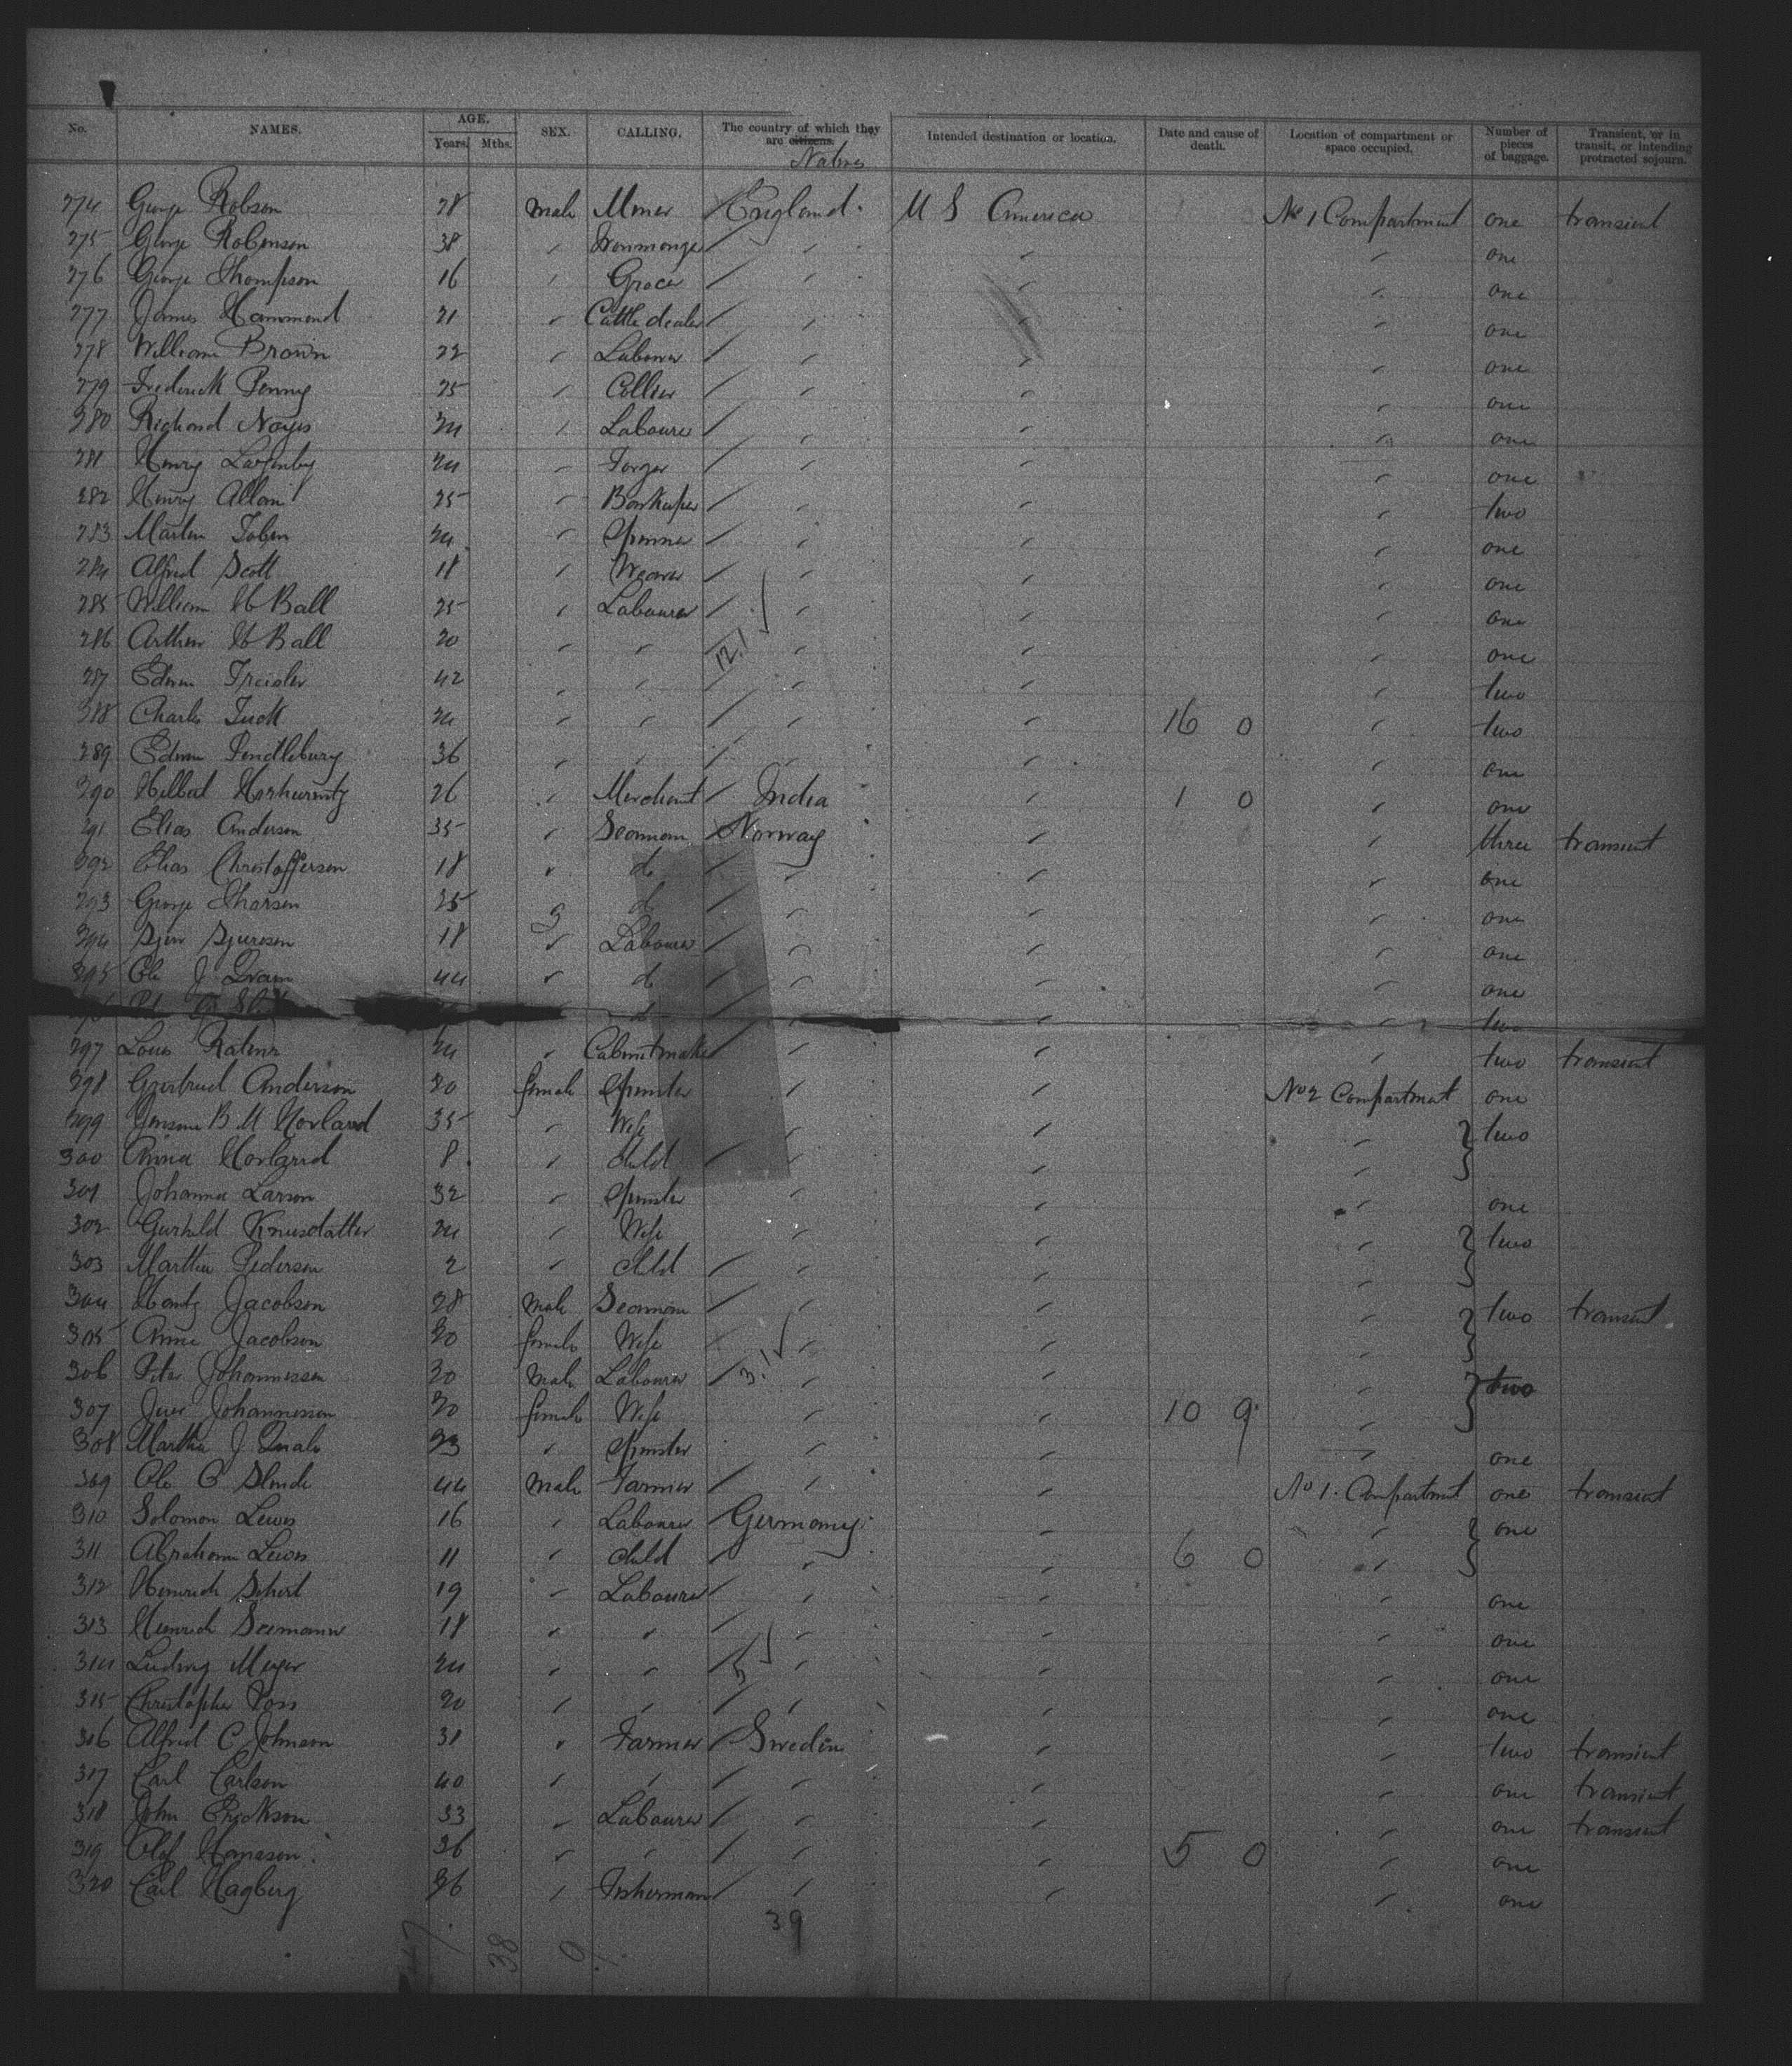 No. NAMES. AGE. Years. Mths. SEX. CALLING. The country of which they are citizens. Natives Intended destination or location. Date and cause of death. Location of compartment or space occupied. Number of pieces of baggage. Transient, or in transit, or intending protracted sojourn.
274 George Robson 28 male Miner England. U S America No 1 Compartment one transient
275 George Robinson 38 " Ironmonger " " " one
276 George Thompson 16 " Grocer " " " one
277 James Hammond 21 " Cattle dealer " " " one
278 William Brown 22 " Labourer " " " one
279 Frederick Penny 25 " Collier " " " one
280 Richard Noyes 24 " Labourer " " " one
281 Henry 24 " Forger " " " one
282 Henry Allani 25 " " " " two
283 Martin Tobin 24 " Spinner " " " one
284 Alfred Scott 18 " Weaver " " " one
285 William H Ball 25 " Labourer " " " one
286 Arthur H Ball 20 " " 12.1 " " " one
287 Edwin 42 " " " " " two
288 Charles Tuck 24 " " " " 16 0 " two
289 Edwin Pendlebury 36 " " " " " one
290 26 " Merchant India " 1 0 " one
291 Elias Anderson 35 " Seaman Norway " " three transient
292 Elias Christofferson 18 " do " " " one
293 George Tharsen 25 " do " " " one
294 Sjur Sjursen 18 " Labourer " " " one
295 Ole J 44 " do " " " one
do " " " two
297 Louis 24 " Cabinetmaker " " " two transient
298 Gertrud Anderson 20 female Spinster " No 2 Compartment one
299 B M Hovland 35 " Wife " " " two
300 Anna Hovland 8 " Child " " "
301 Johanna Larson 32 " Spinster " " " one
302 Gunhild Knusdatter 24 " Wife " " " two
303 Martha Pederson 2 " Child " " "
304 Jacobson 28 male Seaman " " " two transient
305 Anne Jacobson 20 female Wife " " "
306 Peter Johannessen 30 male Labourer 3.1 " " " two
307 Johannessen 20 female Wife " " 10 9 "
308 Martha J 23 " Spinster " " " one
309 Ole O 44 male Farmer " " No 1. Compartment one transient
310 Solomon Lewis 16 " Labourer Germany " " one
311 Abraham Lewis 11 " Child " " 6 0 "
312 Heinrich 19 " Labourer " " " one
313 Heinrich Seemann 18 " " " " " one
314 Ludwig Meyer 24 " " 5 " " " one
315 Christopher Voss 20 " " " " " one
316 Alfred C Johnson 31 " Farmer Sweden " " two transient
317 Carl Carlson 40 " " " " " one transient
318 John Erickson 33 " Labourer " " " one transient
319 Olof Hansson 26 " " " " 5 0 " one
320 Carl Hagberg 26 " Fisherman " " " one
39
38 0